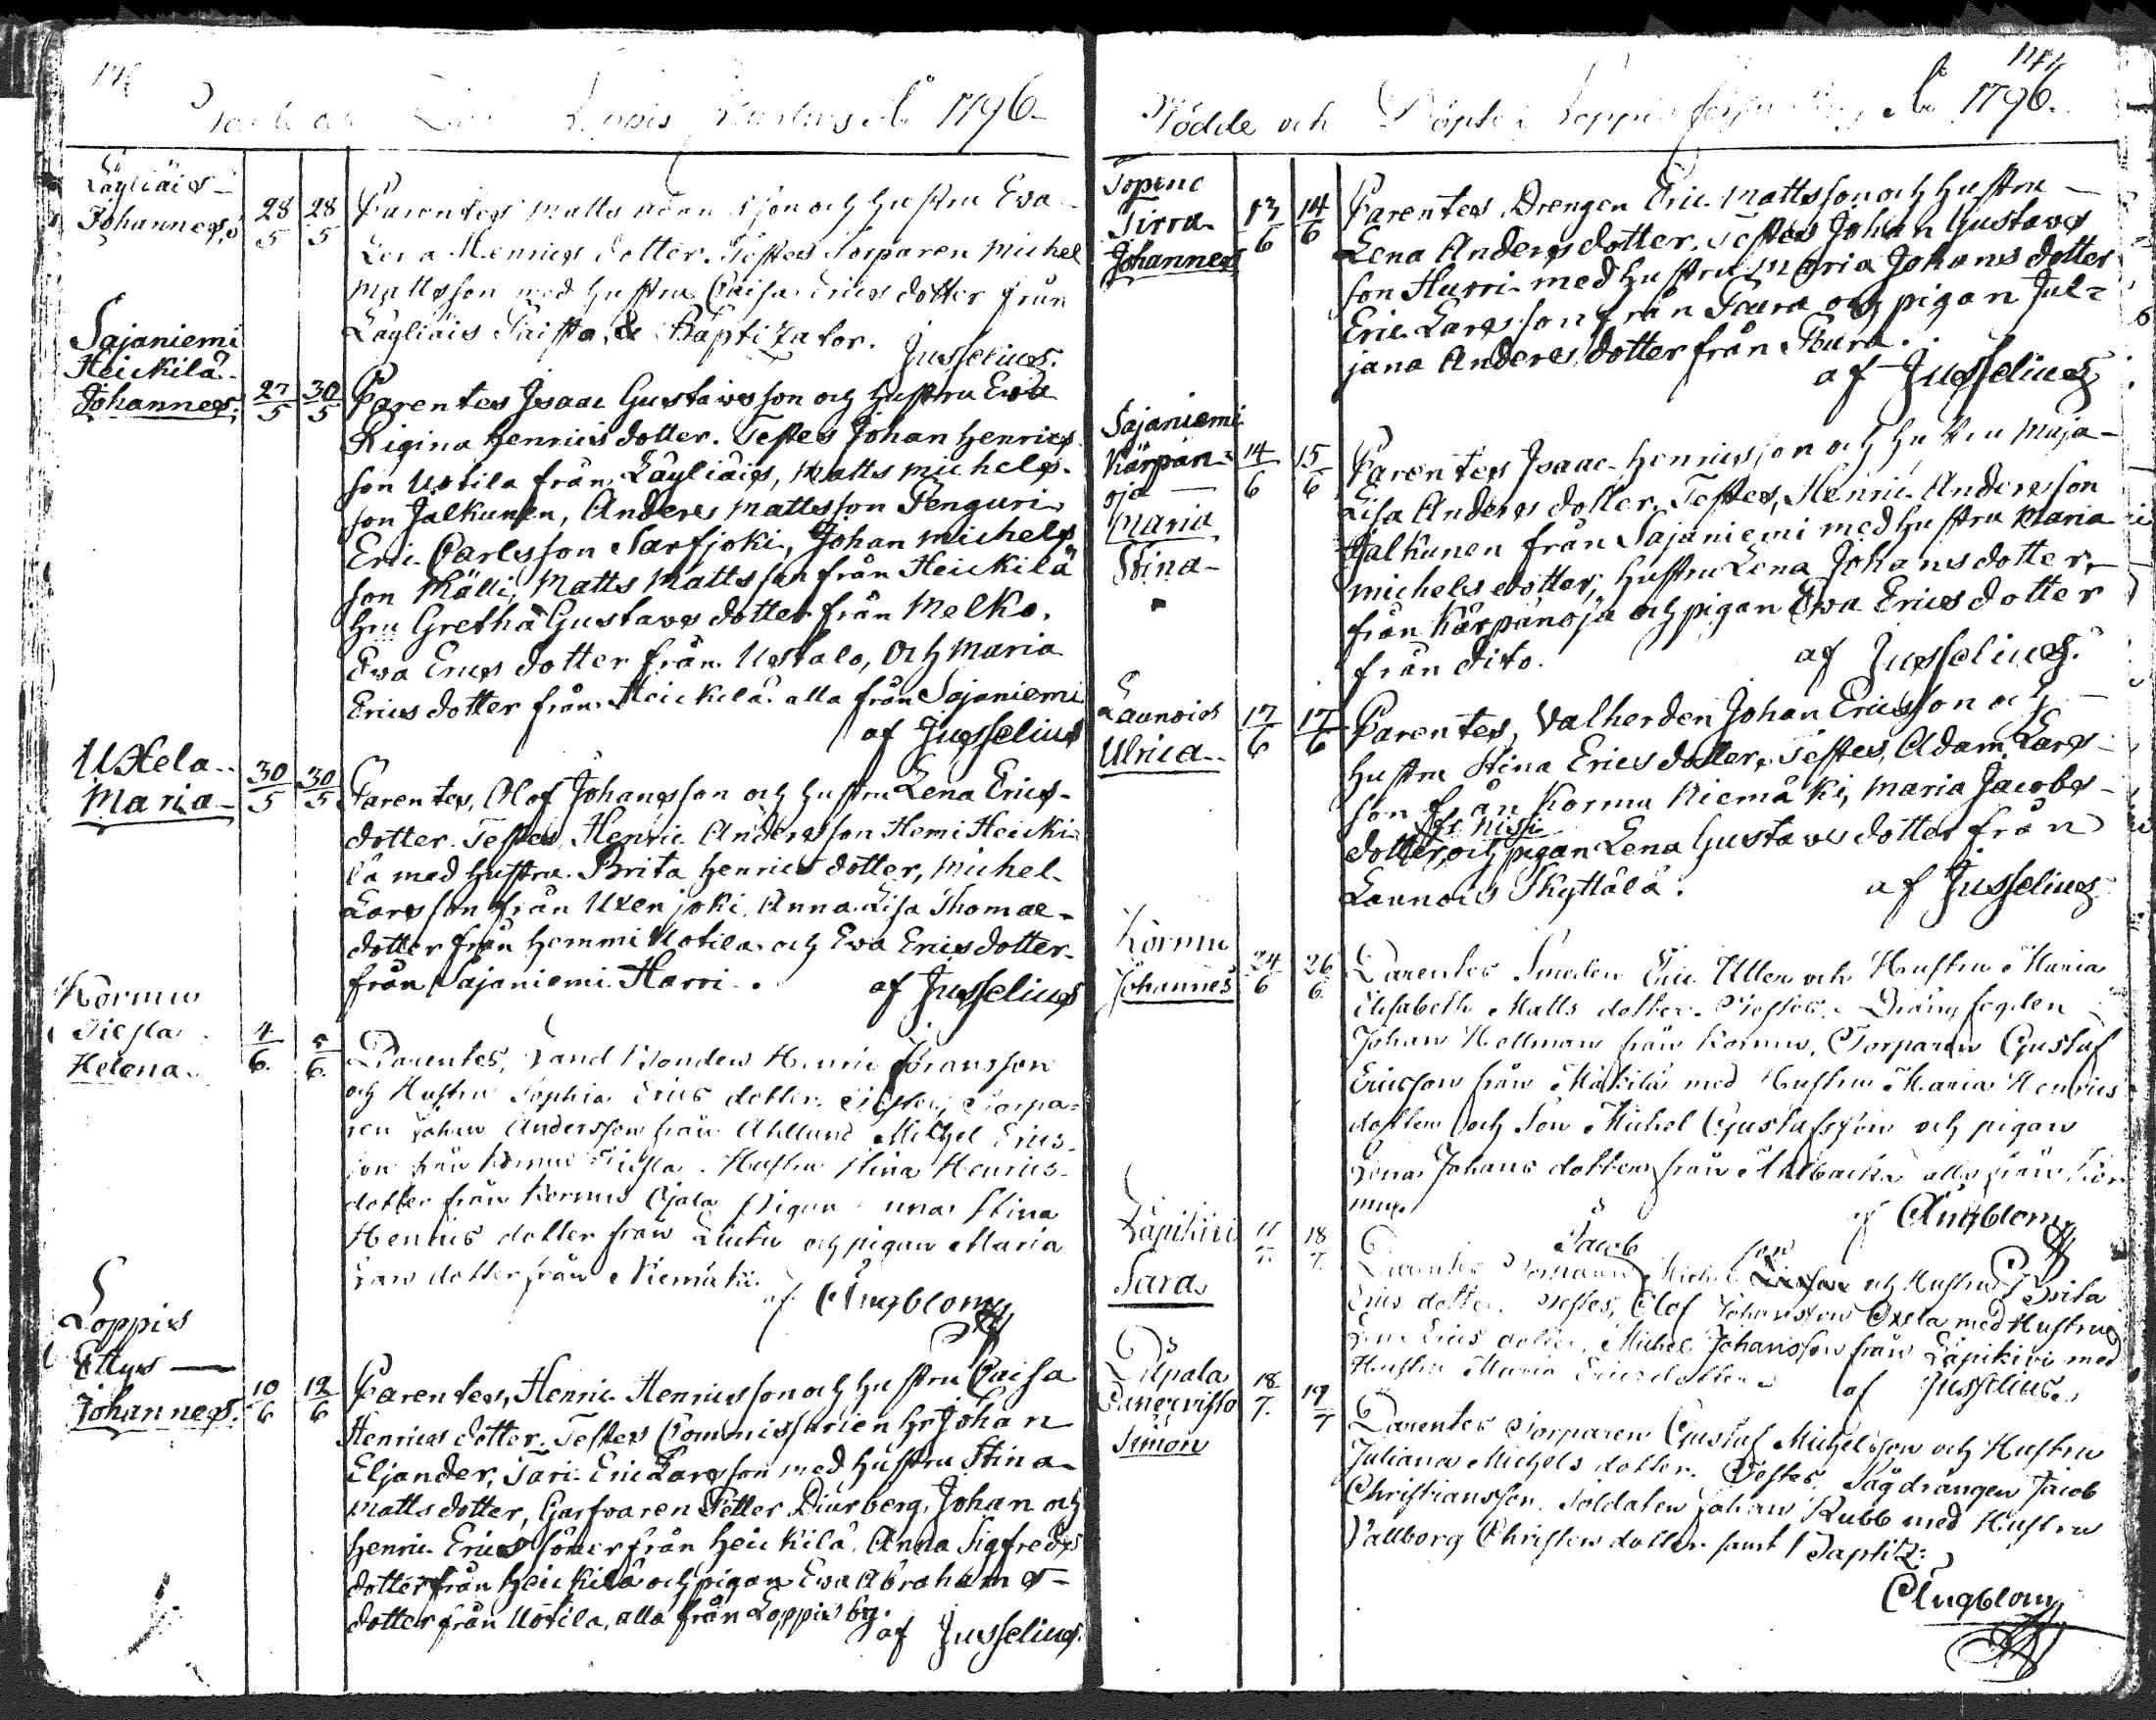 Loppis A:o 1796
Läyliäis
Johannes
28/5 28/5
Parentes Matts son och hustru Eva
Lena Henrics dotter. Testes Torparen Michel
Mattsson med hustru Caisa Erics dotter från
Läyliäis & Baptizator.
Jusselius.
Sajaniemi
Heickilä
Johannes
27/5 30/5
Parentes Isaac Gustavsson och hustru Eva
Rigina Henrics dotter. Testes Johan Henrics
son Uotila från Läyliäis, Matts Michels-
son Jalkunen, Anders Mattsson Penguri
Eric Carlsson Sarfjoki, Johan Michels
son Mälli, Matts Mattsson från Heickilä
hru Gretha Gustavs dotter från Melko.
Eva Erics dotter från Ustalo, och Maria
Erics dotter från Heickilä alla från Sajaniemi
af Jusselius
Uxela
Maria
30/5 30/5
Parentes, Olof Johansson och hustru Lena Erics-
dotter. Testes, Henric Andersson Hemi Heicki-
lä med hustru Brita Henrics dotter, Michel
Larsson från Uxenjoki, Anna Lisa Thomae-
dotter från Hemmi Uotila och Eva Erics dotter
från Sajaniemi Harri.
af Jusselius
Kormu
Helena
4/6 5/6
Parentes, Landbonden Henric Göransson
och Hustru Sophia Erics dotter. Testes, Torpa-
ren Johan Andersson från Ahllund Michel Erics-
son från Kormu Hustru Stina Henrics-
dotter från Kormu Ojala Pigan Stina
Henrics dotter från och pigan Maria
Lars dotter från Niemäki.
af CAngblom
Loppis
Ettys
Johannes
10/6 12/6
Parentes, Henric Henricsson och hustru Caisa
Henrics dotter. Testes Commissarien hr Johan
Eljander, Tari Eric Larsson med hustru Stina
Matts dotter, Garfvaren Petter Diurberg, Johan och
Henric Erics Söner från Heickilä, Anna Sigfreds
dotter från Heickilä och pigan Eva Abrahams-
dotter från Uotila, alla från Loppis by.
af Jusselius.
Födde och Döpte i Loppis A:o 1796.
Topeno
Sirra
Johannes
13/6 14/6
Parentes Drengen Eric Mattsson och hustru
Lena Anders dotter. Testes Johan Gustavs
son Hurri med hustru Maria Johans dotter
Eric Larsson från Saura och pigan Jul-
jana Anders dotter från Saura.
af Jusselius
Sajaniemi
Kärpän-
oja
Maria
Stina
14/6 15/6
Parentes Isaac Henricsson och hustru Maja
Lisa Anders dotter. Testes, Henric Andersson
Jalkunen från Sajaniemi med hustru Maria
Michels dotter, hustru Lena Johans dotter,
från Kärpänoja och pigan Eva Erics dotter
från dito.
af Jusselius.
Launois
Ulrica
17/6 17/6
Parentes, Valherden Johan Ericsson och
hustru Stina Erics dotter. Testes, Adam Lars-
son från Kormu Niemäki, Maria Jacobs-
dotter, och pigan Lena Gustavs dotter från
Launois Skyttälä.
af Jusselius
Kormu
Johannes
24/6 26/6
Parentes Smeden Eric Uller och Hustru Maria
Elisabeth Matts dotter. Testes, Drängfogden
Johan Hellman från Kormu, Torparen Gustaf
Ericsson från Mäkilä med Hustru Maria Henrics
dotter och Son Michel Gustafsson och pigan
Lena Johans dotter från Ahlbacka alla från Kor-
mu.
af CAngblom
Läpikivi
Sara
11/7 18/7
Jacob son
Parentes Torparen Michel och Hustru Brita
Erics dotter. Testes, Olof Johansson Oxela med Hustru
Lena Erics dotter. Michel Johansson från Läpikivi med
Hustru Maria Erics dotter
af Jusselius.
Pilpala
Simon
18/7 19/7
Parentes Torparen Gustaf Michelsson och Hustru
Juliana Michels dotter. Testes, Sågdrängen Jacob
Christiansson, Soldaten Johan Rubb med Hustru
Vallborg Christers dotter samt Baptiz:
CAngblom